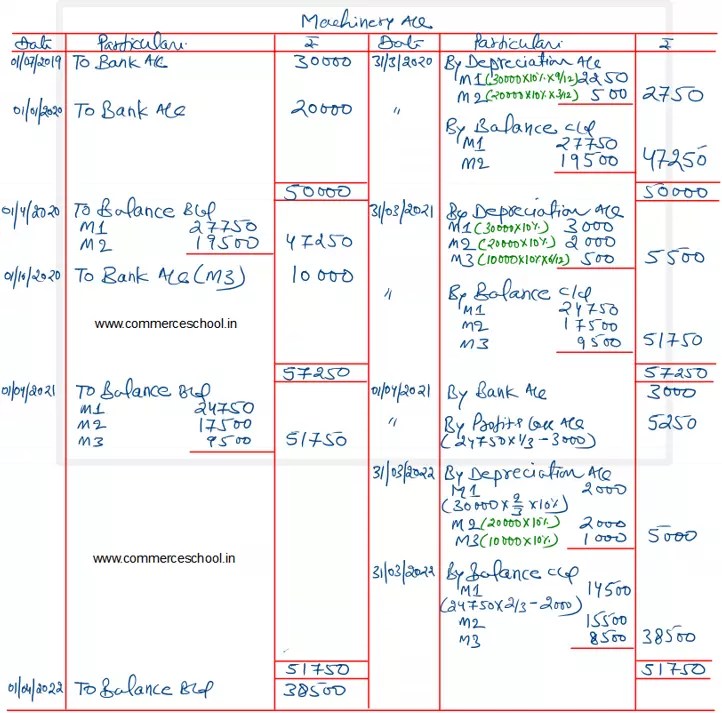 Machinery A/c
Date Particulars ₹ Date Particulars ₹
01/07/2019 To Bank A/c 30000 31/3/2020 By Depreciation A/c
M1 (30000X10%X9/12) 2250
M2 (20000X10%X3/12) 500 2750
01/01/2020 To Bank A/c 20000 "
By Balance c/d
M1 27750
M2 19500 47250
50000 50000
01/4/2020 To Balance B/d 31/03/2021 By Depreciation A/c
M1 27750 M1 (30000X10%) 3000
M2 19500 47250 M2 (20000X10%) 2000
M3 (10000X10%X6/12) 500 5500
01/10/2020 To Bank A/c (M3) 10000
" By Balance c/d
M1 24750
www.commerceschool.in M2 17500
M3 9500 51750
57250 57250
01/04/2021 To Balance B/d 01/04/2021 By Bank A/c 3000
M1 24750
M2 17500 " By Profit & Loss A/c 5250
M3 9500 51750 (24750X1/3-3000)
31/03/2022 By Depreciation A/c
M1 2000
(30000X2/3X10%)
M2 (20000X10%) 2000
M3 (10000X10%) 1000 5000
www.commerceschool.in
31/03/2022 By Balance c/d
M1 14500
(24750X2/3-2000)
M2 15500
M3 8500 38500
51750 51750
01/04/2022 To Balance B/d 38500